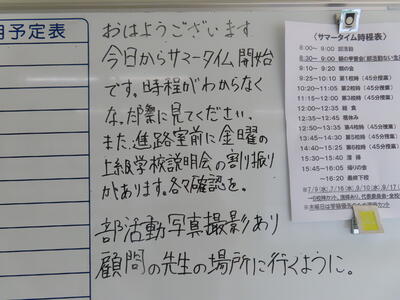 月予定表
おはようございます
今日からサマータイム開始
です。時程がわからなく
なった際に見てください。
また、進路室前に金曜の
上級学校説明会の割り振り
があります。各々確認を。
部活動写真撮影あり
顧問の先生の場所に行くように。
〈サマータイム時程表〉
8:00 ~ 9:00 部活動
8:30 ~ 9:10
9:10 ~ 9:20 朝の会
9:25~10:10 第1校時(45分授業)
10:20~11:05 第2校時(45分授業)
11:15~12:00 第3校時(45分授業)
12:00~12:35 給食
12:35~12:50 昼休み
12:50~13:35 第4校時(45分授業)
13:45~14:30 第5校時(45分授業)
14:40~15:25 第6校時(45分授業)
15:30~15:40 清掃
15:45~16:05 帰りの会
~16:20 最終下校